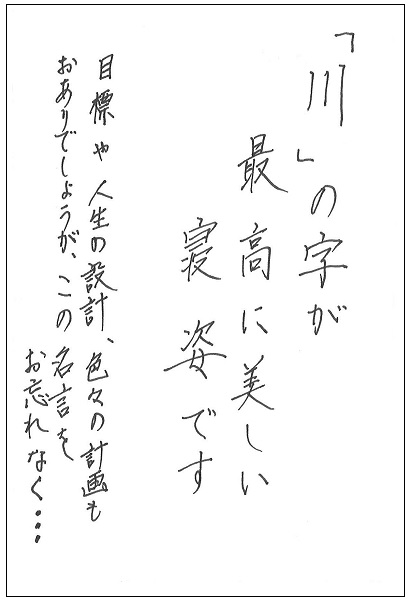 「川」の字が
最高に美しい
寝姿です
目標や人生の設計、色々の計画も
おありでしょうが、この名言を
お忘れなく・・・